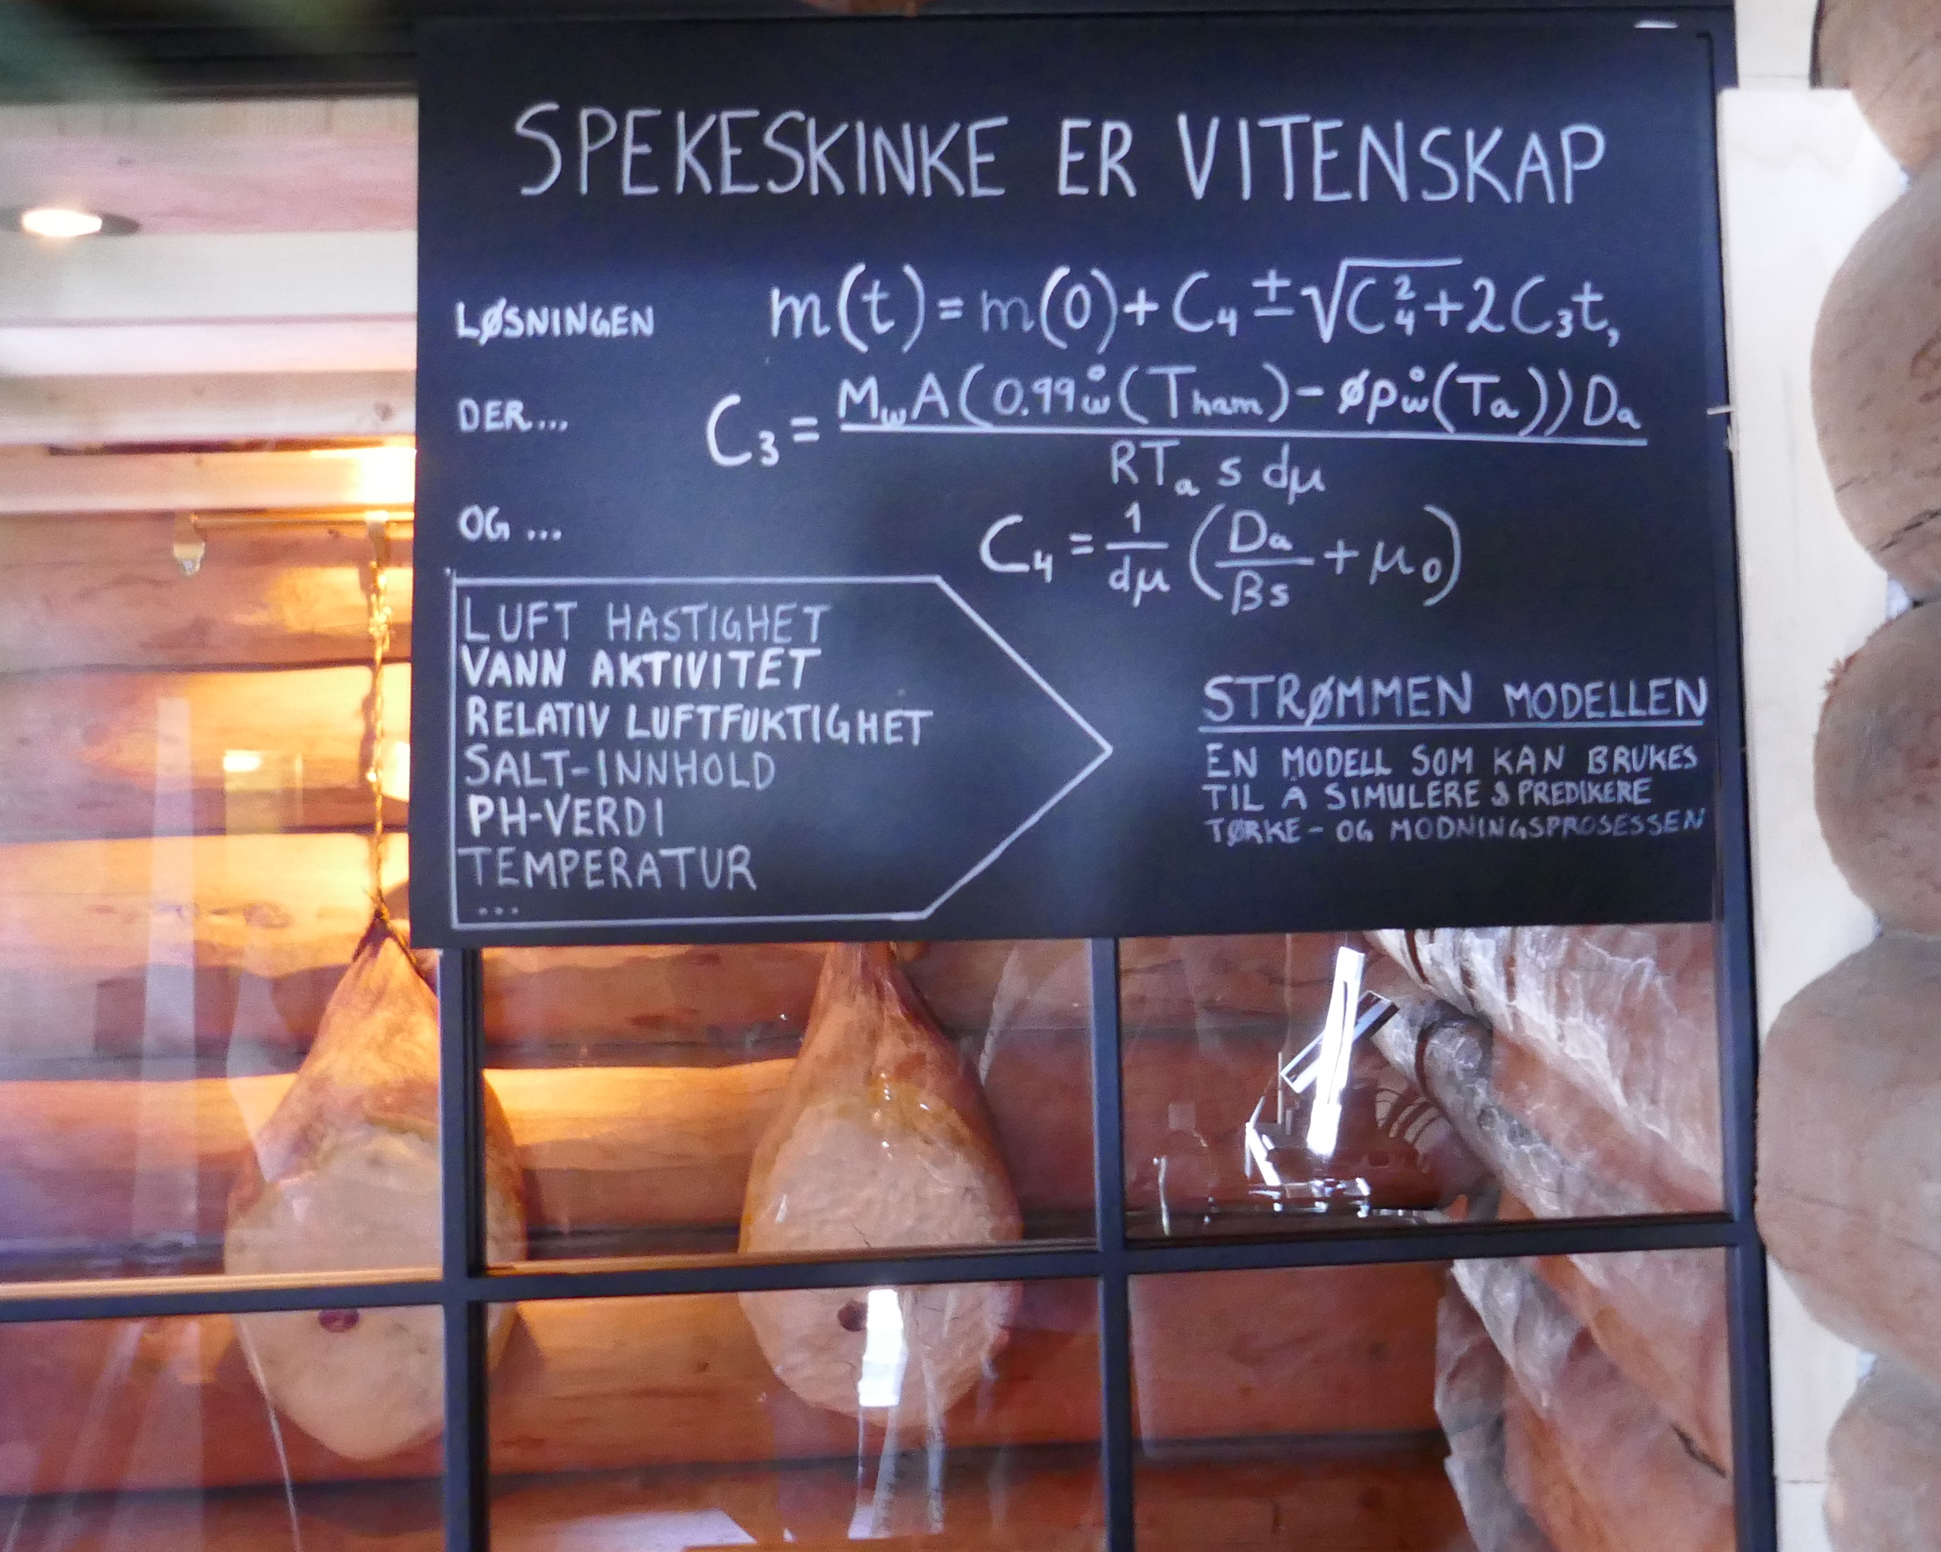 SPEKESKINKE ER VITENSKAP
LØSNINGEN m(t) = m(0) + C₄ ± √C₄² + 2C₃t,
DER... C₃ = MwA(0.99ẘ(Tham) - øpẘ(Ta))Da / RTa s dμ
OG ... C₄ = 1/dμ (Da/Bs + μ₀)
LUFT HASTIGHET
VANN AKTIVITET
RELATIV LUFTFUKTIGHET
SALT-INNHOLD
PH-VERDI
TEMPERATUR
...
STRØMMEN MODELLEN
EN MODELL SOM KAN BRUKES
TIL Å SIMULERE & PREDIKERE
TØRKE- OG MODNINGSPROSESSEN